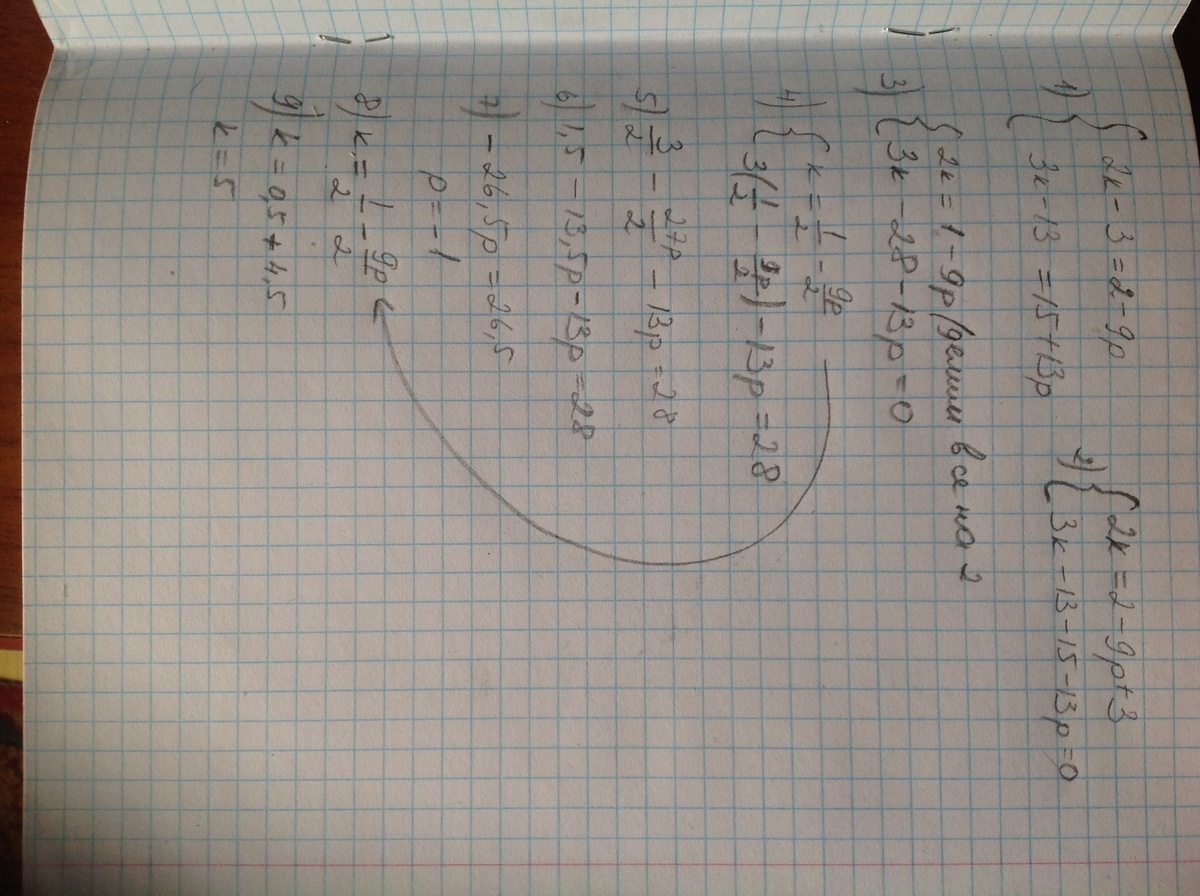 1) { 2к - 3 = 2 - 9p
{ 3к - 13 = 15 + 13p
2) { 2к = 2 - 9p + 3
{ 3к - 13 - 15 - 13p = 0
3) { 2к = 1 - 9p / делим все на 2
{ 3к - 28 - 13p = 0
4) { к = 1/2 - 9p/2
3(1/2 - 9p/2) - 13p = 28
5) 3/2 - 27p/2 - 13p = 28
6) 1,5 - 13,5p - 13p = 28
7) - 26,5p = 26,5
p = -1
8) к = 1/2 - 9p/2
9) к = 0,5 + 4,5
к = 5